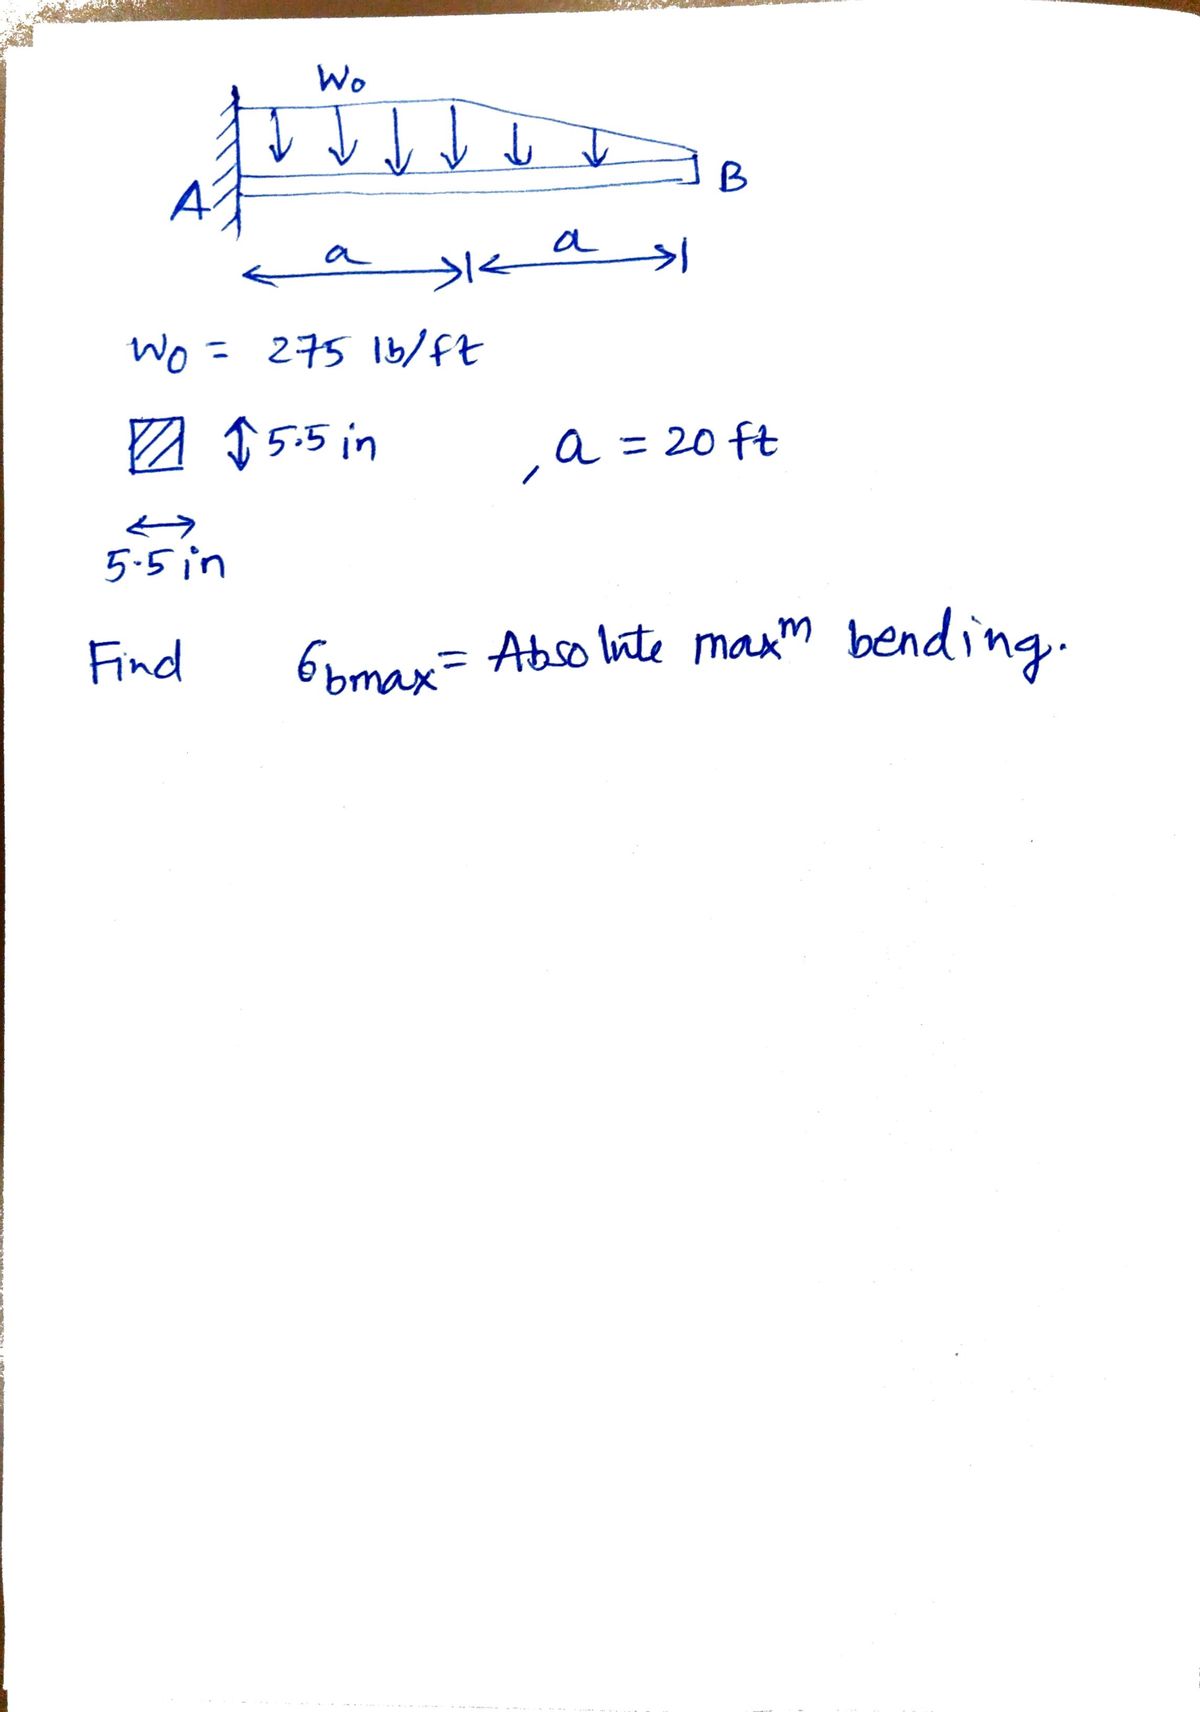 Wo
A
B
a a
Wo = 275 lb/ft
5.5 in , a = 20 ft
5.5 in
Find σbmax = Absolute maxm bending.